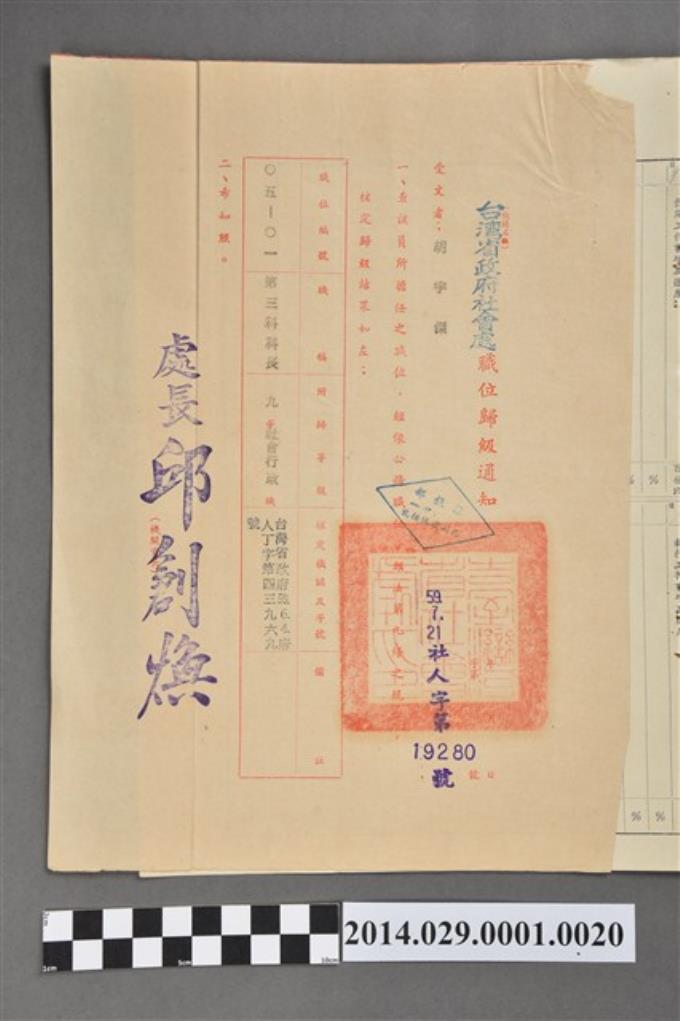 台灣省政府社會處職位歸級通知
受文者：胡宇
59.7.21社人字第
19280
號
日
號
一、查該員所擔任之職位，經依公務職
核定歸級結果如左：
職位編號 職稱 所歸等級 核定機關及字號 備註
〇五-〇一 第三科科長 九等社會行政職
台灣省政府59.6.4.府
人丁字第四三九六九
號
二、希知照。
處長邱創煥
2014.029.0001.0020
1cm
5cm
10cm
2cm
%
%
%
%